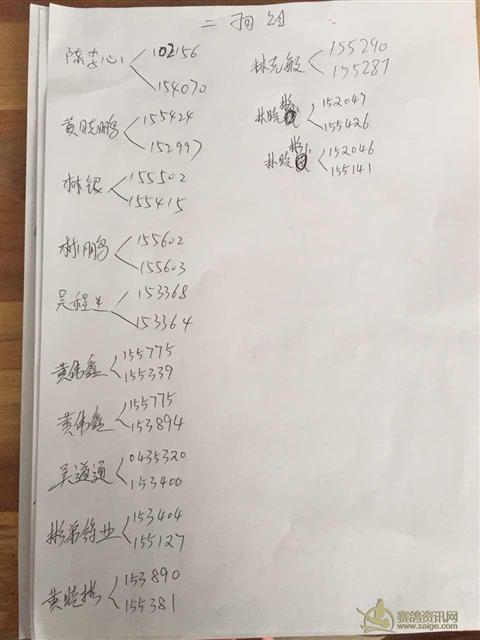 二狗组
陈孝心 102156
154070
黄晓鹏 155424
152997
林银 155502
155415
林鹏 155602
155603
吴程 153368
153364
黄伟鑫 155775
155339
黄伟鑫 155775
153894
吴道通 0435320
153400
彬弟鸽业 153404
155127
黄晓彬 153890
155381
林克敏 155290
155287
林晓彬 152047
155426
林晓彬 152046
155141
赛鸽资讯网
www.saige.com